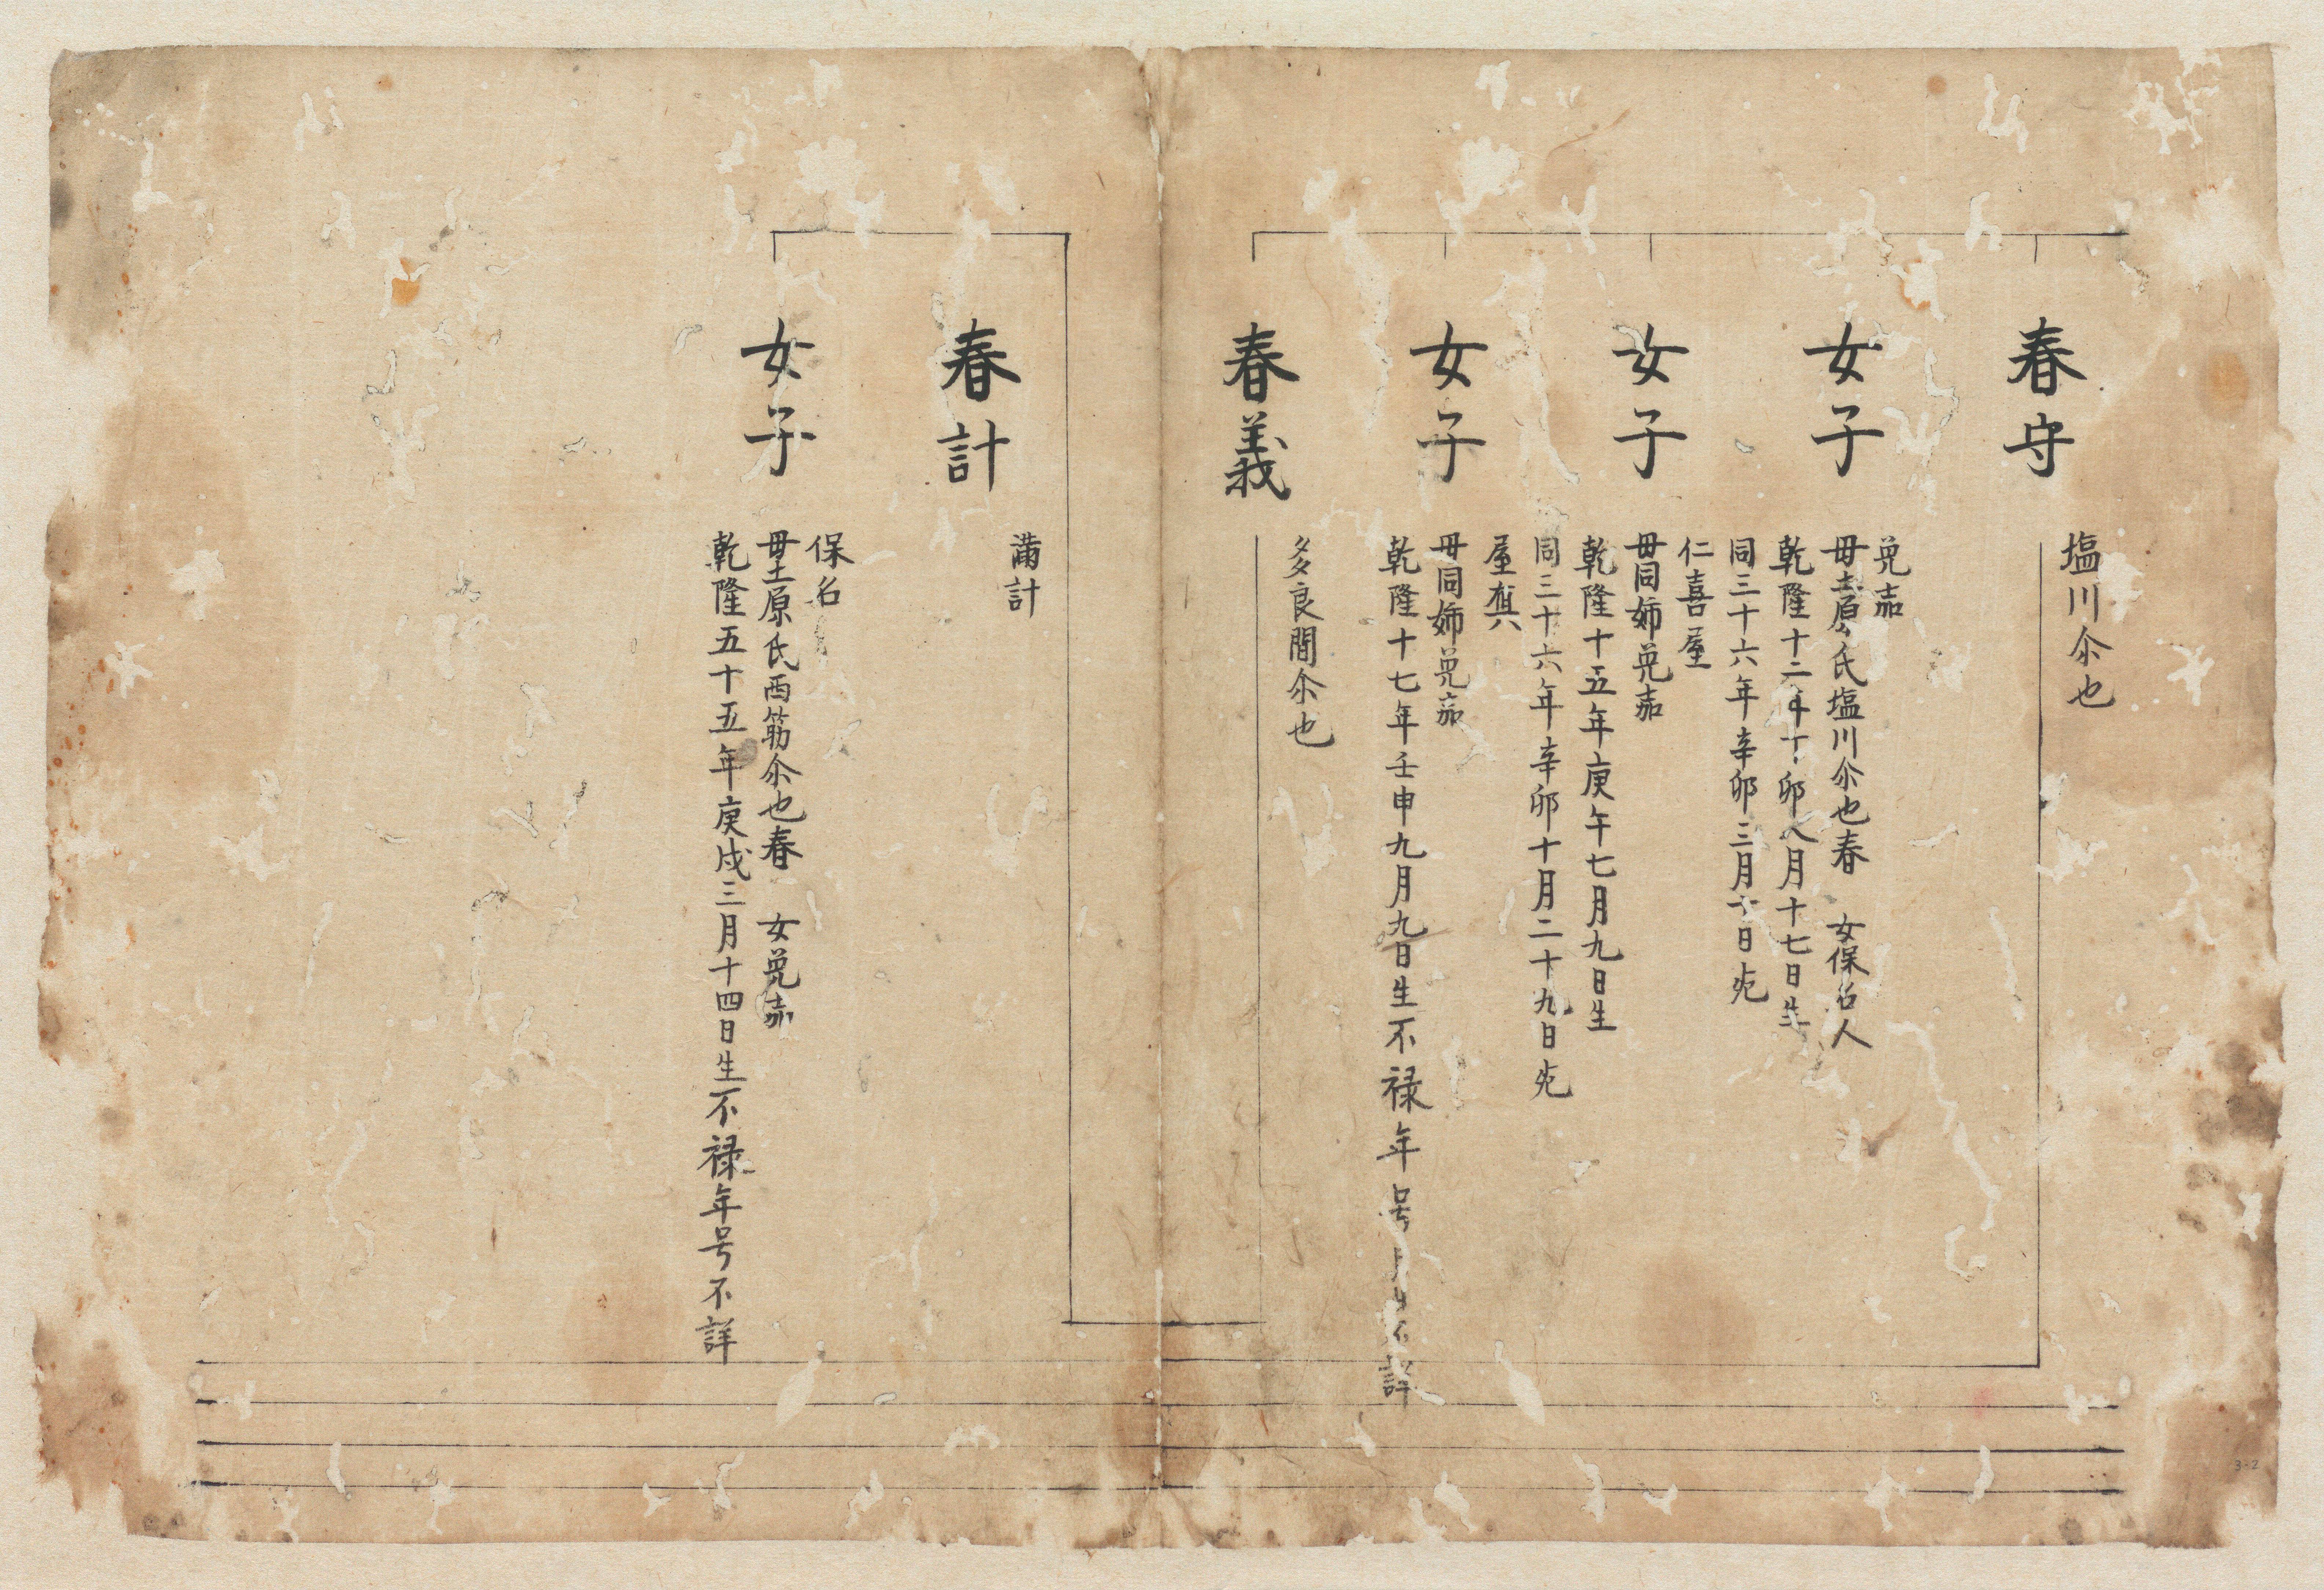 春守
塩川尒也
女子
兠茄
毋土原氏塩川尒也春 女保名人
乾隆十二年丁卯八月十七日生
同三十六年辛卯三月十日死
女子
仁喜屋
毋同姉兠茄
乾隆十五年庚午七月九日生
同三十六年辛卯十月二十九日死
女子
屋真
毋同姉兠茄
乾隆十七年壬申九月九日生不禄年号月日不詳
春義
多良間尒也
春計
満計
女子
保名
毋土原氏西筋尒也春 女兠茄
乾隆五十五年庚戌三月十四日生不禄年号不詳
3-2